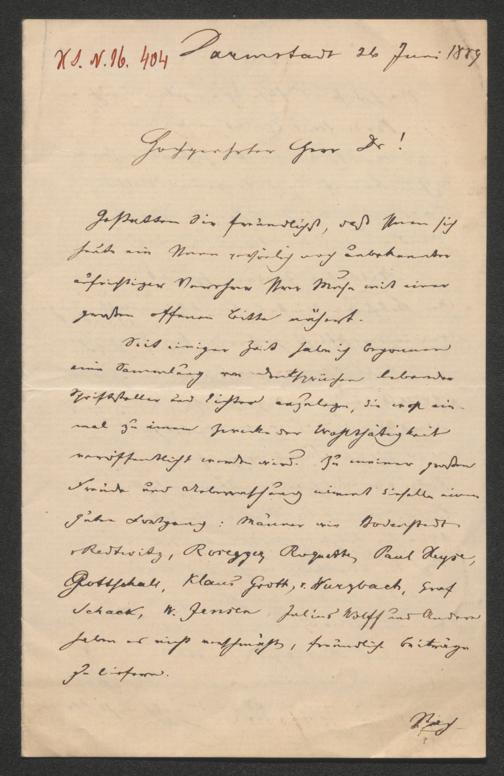 H.I.N.96.404
Darmstadt 26 Juni 1889
Hochgeehrter Herr Dr!
Gestatten Sie freundlichst, daß Ihnen sich
heute ein Ihnen persönlich noch unbekannter
aufrichtiger Verehrer Ihrer Muse mit einer
großen offenen Bitte nähert.
Seit einiger Zeit habe ich begonnen
eine Sammlung von Denksprüchen lebender
Schriftsteller und Dichter anzulegen, die wohl ein-
mal zu einem Zwecke der Wohlthätigkeit
veröffentlicht werden wird. Zu meiner großen
Freude und Ueberraschung nimmt dieselbe einen
guten Fortgang: Männer wie Bodenstedt
Redwitz, Rosegger Roquette, Paul Heyse,
Gottschall, Klaus Groth, v. Wurzbach, Graf
Schack, W. Jensen Julius Wolff und Andere
haben es nicht verschmäht, freundlich Beiträge
zu liefern.